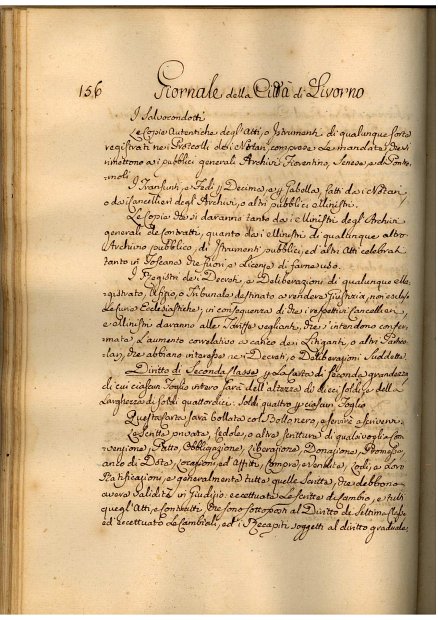 156 Giornale della Città di Livorno
I Salvocondotti
Le Copie Autentiche degl'Atti, o Istrumenti di qualunque sorte
registrati nei Protocolli dei Notari, comprese Le mandate, che si
rimettono ai pubblici generali Archivi Fiorentino, Senese, e di Pontre-
moli
I Transunti, e Fedi p Decima, e p Gabella, fatti dai Notari,
o dai Cancellieri degl'Archivi, o altri pubblici Ministri.
Le Copie che si daranno tanto dai Ministri degl'Archivi
generali de Contratti, quanto dai Ministri di qualunque altro
Archivio pubblico, di Istrumenti pubblici, ed altri Atti celebrati
tanto in Toscana che fuori, a Licenza di farne uso.
I Registri dei Decreti, e Deliberazioni di qualunque Ma-
gistrato, Ufizio, e Tribunale destinato a rendere Giustizia, non escluse
Le Curie Ecclesiastiche, in conseguenza di che i respettivi Cancellieri,
e Ministri daranno alle Tariffe veglianti, che s'intendono confer-
mate L'aumento correlativo a carico dei Litiganti, o altri Partico-
lari, che abbiano interesse nei Decreti, o Deliberazioni Suddette.
Diritto di Seconda Classe p La Carta di seconda grandezza
di cui ciascun Foglio intero sarà dell'altezza di dieci soldi, e della
Larghezza di soldi quattordici: Soldi quattro p ciascun Foglio
Questa Carta sarà bollata col Bollo nero, e servirà a scrivere
Le Scritte private, Cedole, o altre scritture di qualsivoglia Con-
venzione, Patto, Obbligazione, Liberazione, Donazione, Promessa,
anco di Dota, Locazioni, ed Affitti, Compre, e Vendite, Lodi, e Loro
Ratificazioni, e generalmente tutte quelle Scritte, che debbono
avere Validità in Giudizio: eccettuate Le scritte di Cambio, e tutti
quegl'Atti, e Contratti, che sono sottoposti al Diritto de Settima Classe
ed eccettuate Le Cambiali, ed i Recapiti soggetti al diritto graduale.